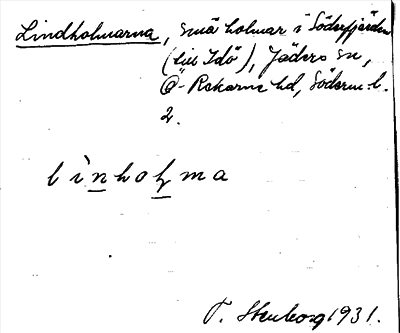 Lindholmarna, små holmar i Söderfjärden
(till Idö), Jäders sn,
Ö-Rekarne hd, Söderm. l.
2.
lìnholma
T. Stenborg 1931.